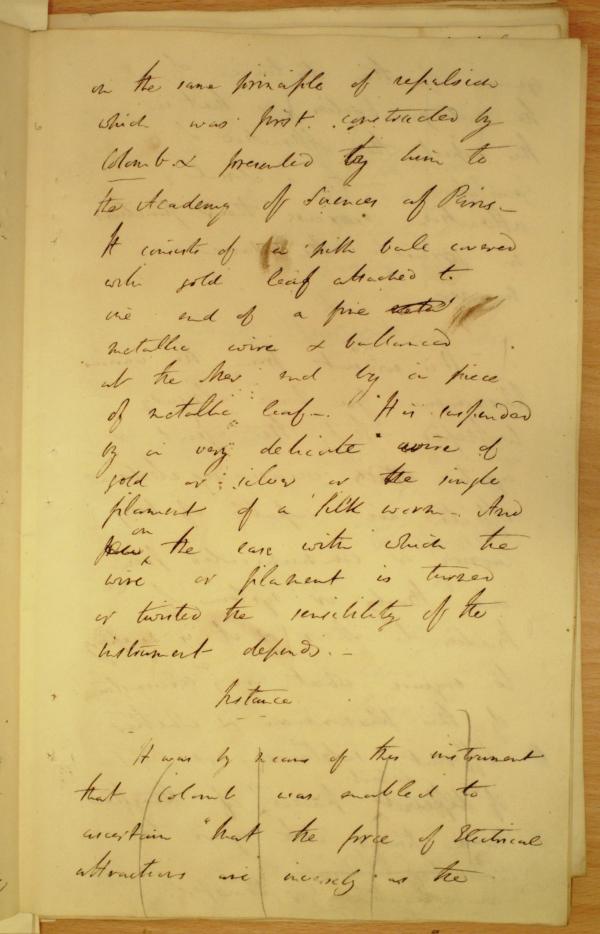 on the same principle of repulsion
which was first constructed by
Colomb & presented by him to
the Academy of Sciences of Paris –
It consists of a pith bale covered
with gold leaf attached to
one end of a fine
metallic wire & ballanced
at the other end by a piece
of metallic leaf –. It is suspended
by a very delicate wire of
gold or silver or the single
filament of a Silk worm –. And
on the ease with which the
wire or filament is turned
or twisted the sensibility of the
instrument depends. –
Instance
It was by means of this instrument
that Colomb was enabled to
ascertain "that the force of Electrical
attractions are inversely as the